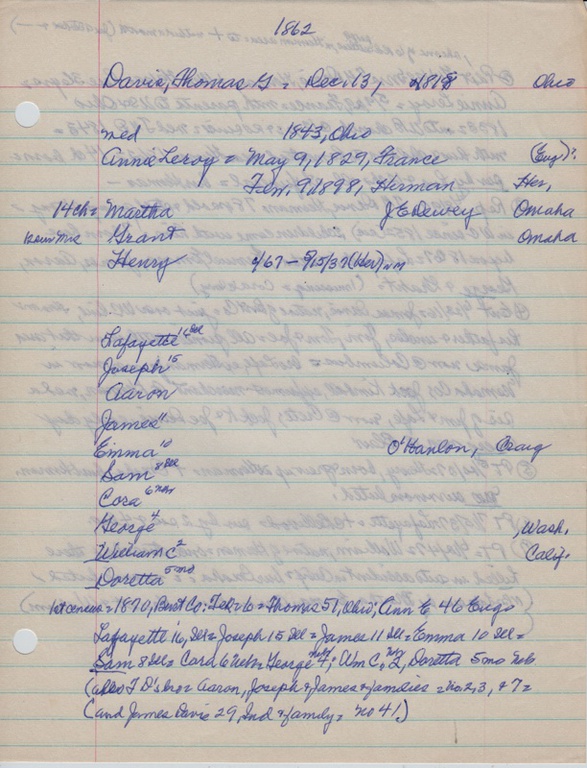 1862
Davis, Thomas G = Dec. 13, 1818 Ohio
med 1843, Ohio
Annie Leroy = May 9, 1829, France (Eng):
Fen, 9, 1898, Herman Her,
14 ch = Martha J E Dewey Omaha
Grant Omaha
Henry 67 - 5/15/37 (Her)
Lafayette 16 Ill
Joseph 15
Aaron
James 11
Emma 10 O'Hanlon, Craig
Sam 8 Ill
Cora 6 Neb
George 4 , Wash.
William C 2 Calif.
Doretta 5 mo
1st census = 1870, Burt Co: Feb = 6 = Thomas 51, Ohio; Ann E 46 Eng =
Lafayette 16, Ill = Joseph 15 Ill = James 11 Ill = Emma 10 Ill =
Sam 8 Ill = Cora 6 Neb = George Neb 4; Wm C, Neb 2, Doretta 5 mo Neb
(also T D's bro = Aaron, Joseph & James & families = No. 2, 3, + 7 =
(and James Davis 29, Ind & family = no 41.)